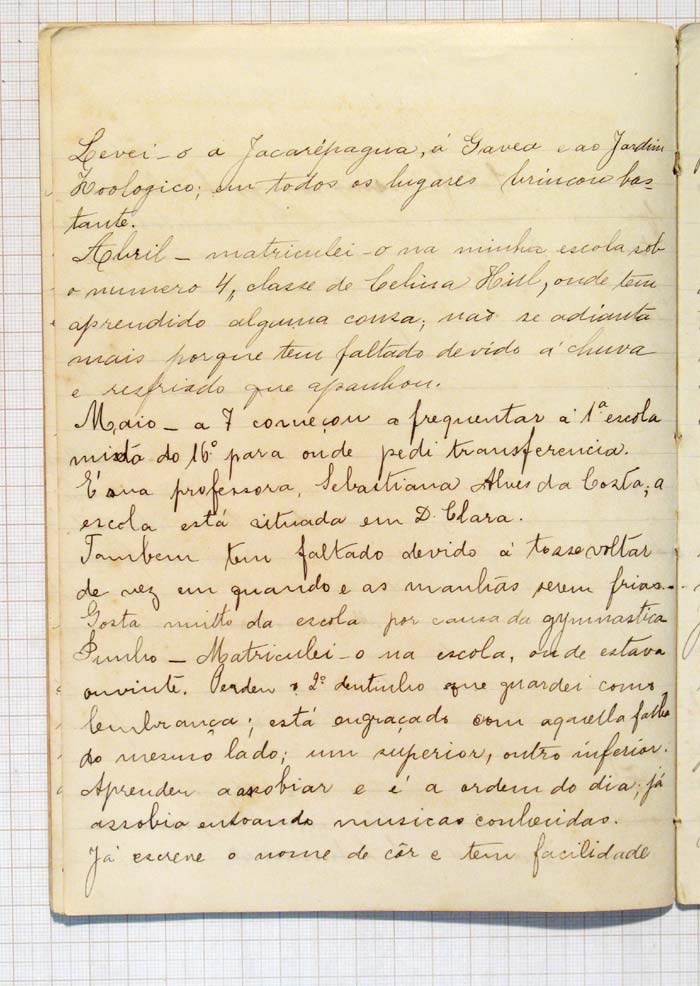 Levei-o a Jacarépagua, á Gavea e ao Jardim
Zoologico; em todos os lugares brincou bas-
tante.
Abril - matriculei-o na minha escola, sob
o numero 4, classe de Celina, onde tem
aprendido alguma cousa; não se adianta
mais porque tem faltado devido á chuva
e resfriado que apanhou.
Maio - a 7 começou a frequentar a 1ª escola
mixta do 16º para onde pedi transferencia.
É sua professora, Sebastiana Alves da Costa; a
escola está situada em D. Clara.
Tambem tem faltado devido á tosse voltar
de vez em quando e as manhãs serem frias...
Gosta muito da escola por causa da gymnastica
Junho - Matriculei-o na escola, onde estava
ouvinte. Perdeu o 2º dentinho que guardei como
lembrança; está engraçado com aquella falha
do mesmo lado; um superior, outro inferior.
Aprendeu a assobiar e é a ordem do dia; já
assobia entoando musicas conhecidas.
Já escreve o nome de côr e tem facilidade